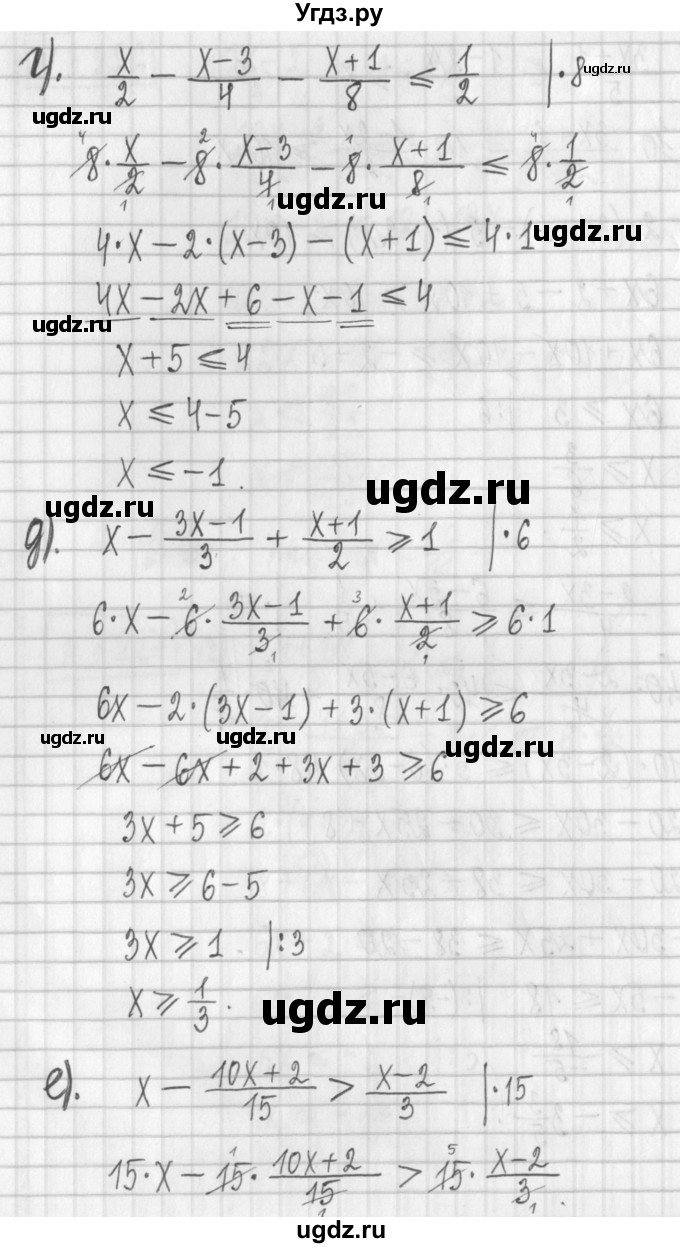 Угдз.ру
г). x/2 − (x−3)/4 − (x+1)/8 ⩽ 1/2 |·8
ugdz.ru
ugdz.ru
8·x/2 − 8·(x−3)/4 − 8·(x+1)/8 ⩽ 8·1/2
ugdz.ru
4·x − 2·(x−3) − (x+1) ⩽ 4·1
ugdz.ru
4x − 2x + 6 − x − 1 ⩽ 4
ugdz.ru
x + 5 ⩽ 4
x ⩽ 4−5
x ⩽ −1.
ugdz.ru
ugdz.ru
д). x − (3x−1)/3 + (x+1)/2 ⩾ 1 |·6
6·x − 6·(3x−1)/3 + 6·(x+1)/2 ⩾ 6·1
6x − 2·(3x−1) + 3·(x+1) ⩾ 6
ugdz.ru
ugdz.ru
ugdz.ru
6x − 6x + 2 + 3x + 3 ⩾ 6
3x + 5 ⩾ 6
3x ⩾ 6−5
3x ⩾ 1 |:3
x ⩾ 1/3.
ugdz.ru
е). x − (10x+2)/15 > (x−2)/3 |·15
15·x − 15·(10x+2)/15 > 15·(x−2)/3.
ugdz.ru